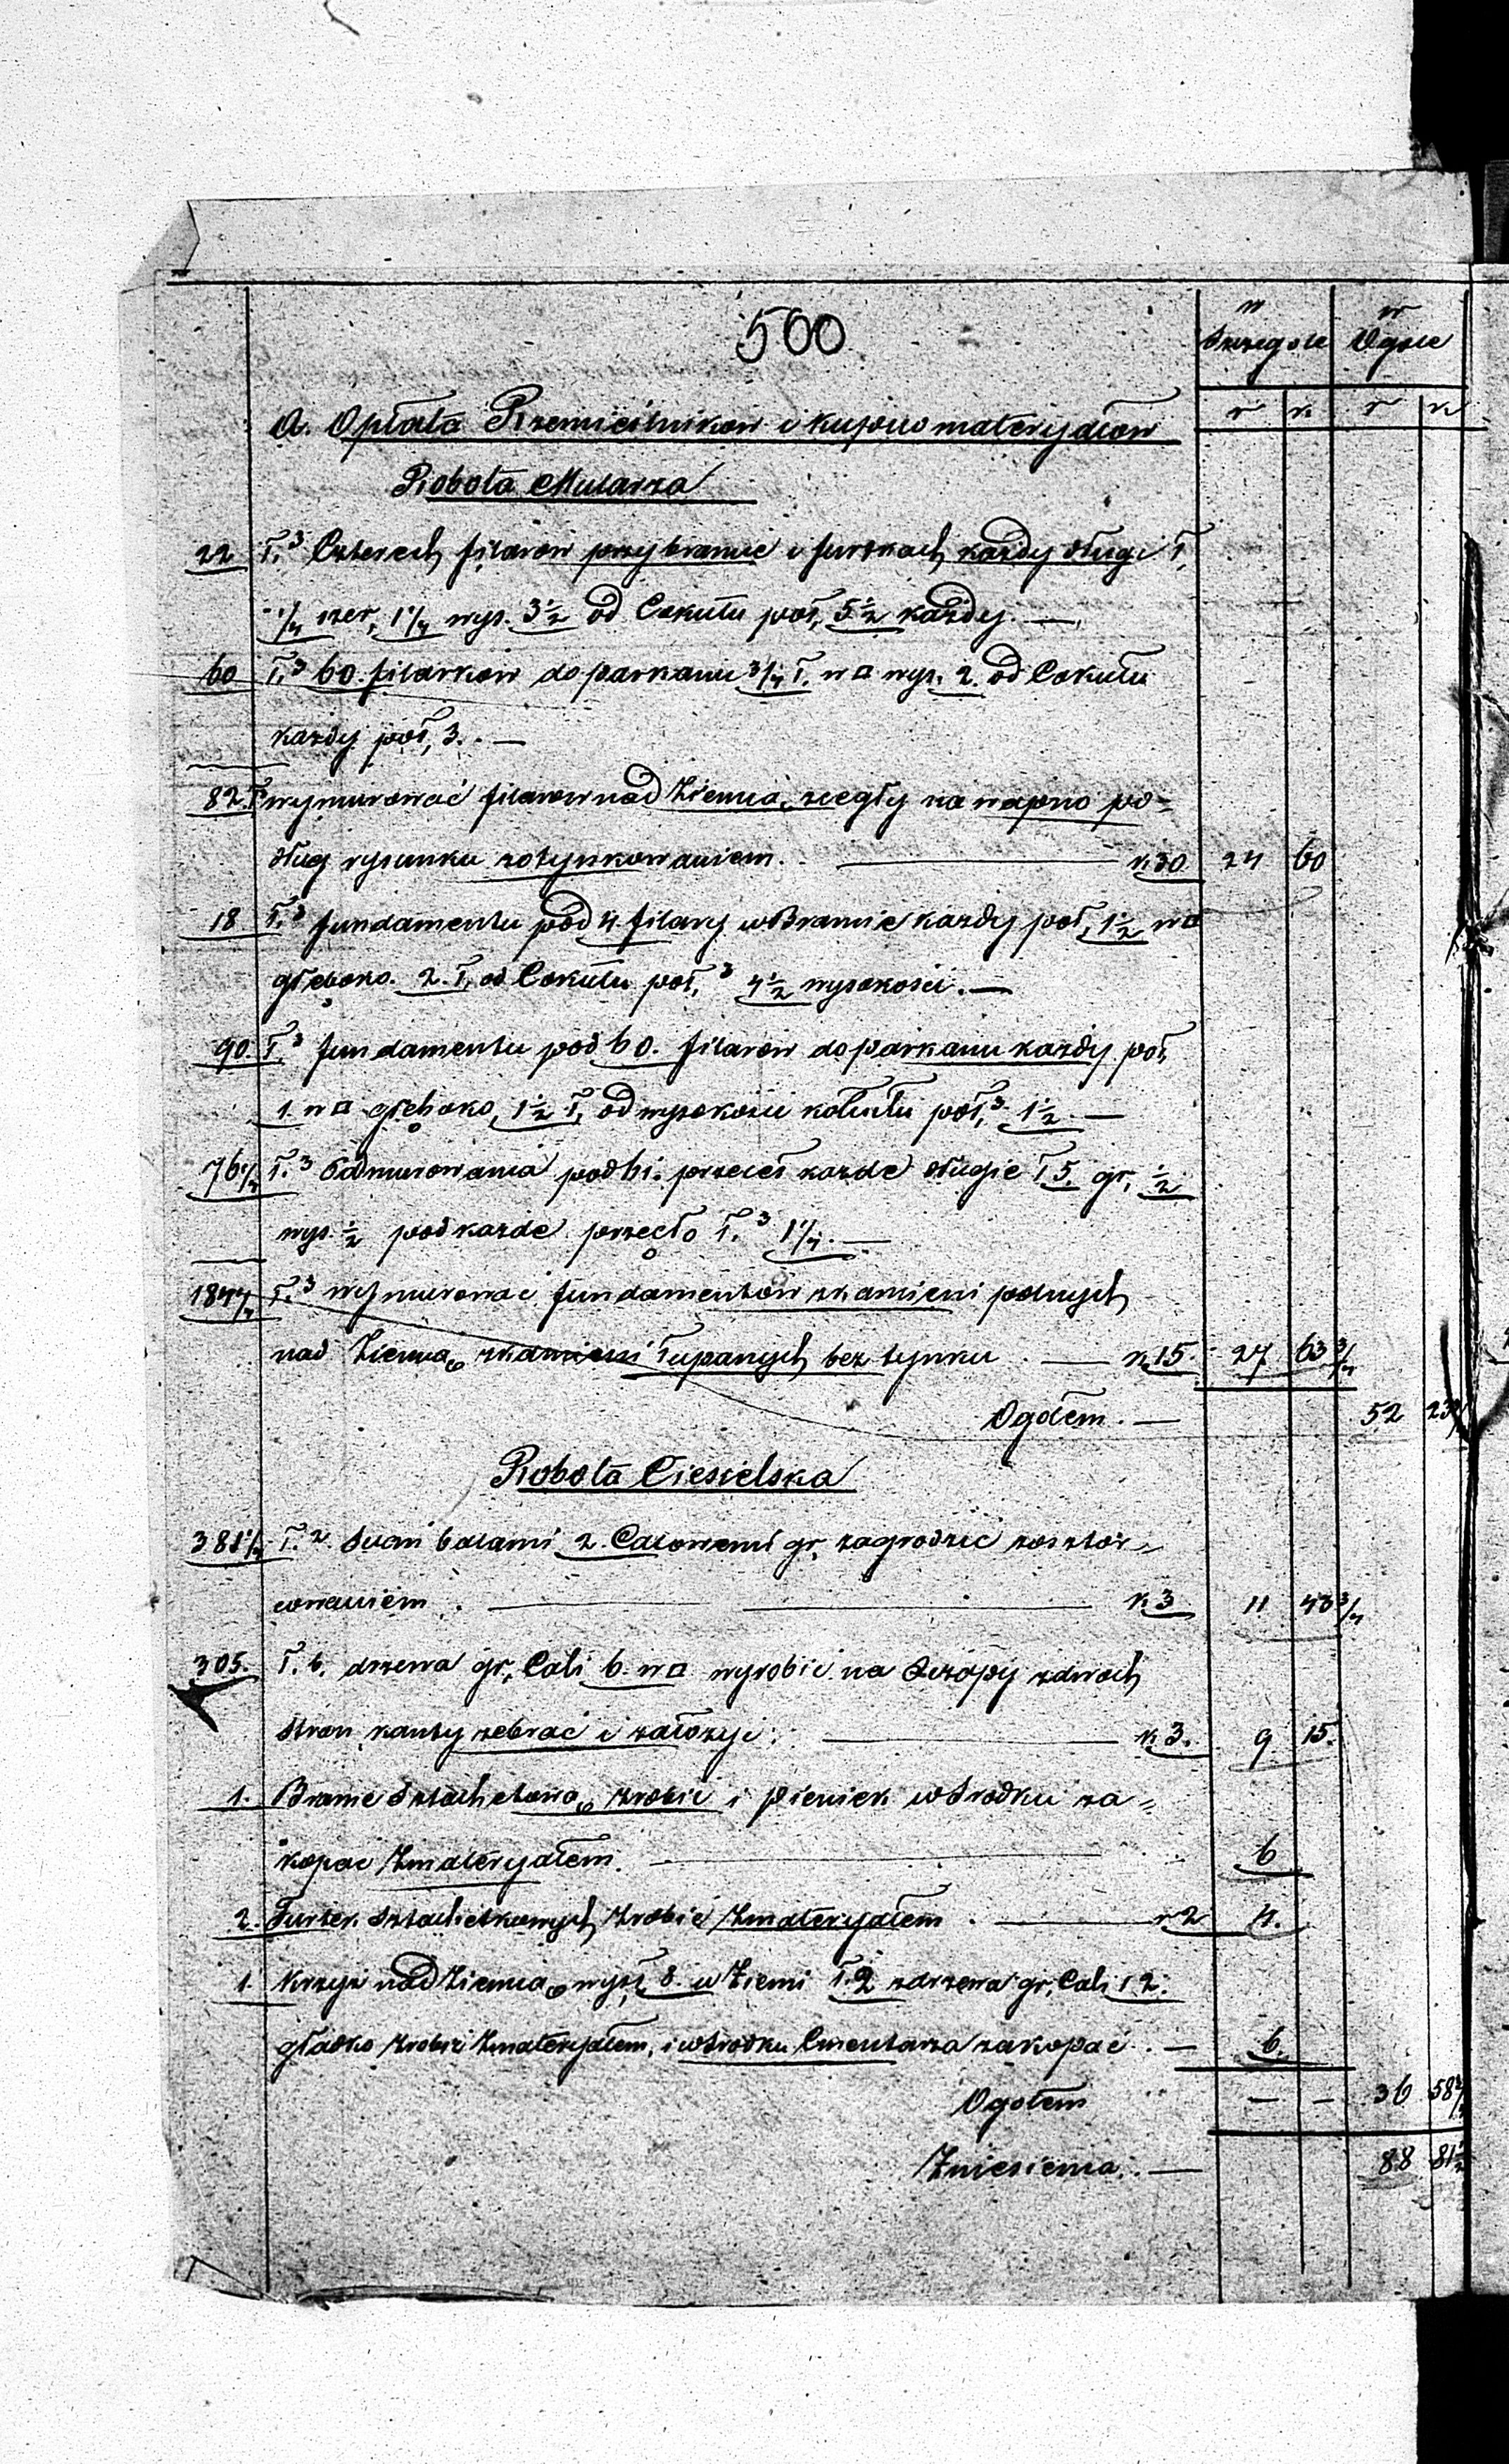 500
w Szczegole w Ogole
r k r k
A. Opłata Rzemieślnikow i kupno materyałow
Robota Mularza
22 Ł.³ Czterech filarow przy bramie i furtkach każdy długi Ł,
1/4 szer, 1 1/4 wys. 3 1/2 od Cokułu poł, 5 1/2 każdy. —
60 Ł.³ 60. filarkow do parkanu 3/4 Ł. w □ wys. 2. od Cokułu
każdy poł, 3. —
82. Ł³ wymurować filarow nad Ziemią, zcegły na wapno po=
dług rysunku zotynkowaniem. — k 30 24 60
18 Ł.³ fundamentu pod 4 filary w Bramie każdy poł, 1 1/2 w □
głęboko. 2. Ł, od Cokułu poł,³ 4 1/2 wysokości. —
90. Ł.³ fundamentu pod 60. filarow do parkanu każdy poł,
1. w □ głęboko, 1 1/2 Ł, od wysokości kokułu poł,³ 1 1/2 —
76 1/4 Ł.³ Odmurowania pod 61. przeceł każde długie Ł 5. gr, 1/2
wys. 1/2 pod każde przęcło Ł.³ 1 1/4. —
184 1/4 Ł.³ wymurować fundamentow zkamieni polnych
nad Ziemią zkamieni łupanych bez tynku. — k 15. 27 63 3/4
Ogołem. — 52 23 3/4
Robota Ciesielska
381 1/4 Ł.² Scian balami 2. Calowemi gr, zagrodzić zosztor=
cowaniem. — k 3 11 43 3/4
305. Ł. b. drzewa gr, Cali 6. w □ wyrobić na Sczopy zdwoch
stron kanty zebrać i założyć. — k 3. 9 15.
1. Bramę Sztachetową zrobić i pieniek w Srodku za=
kopać Zmateryałem. — 6
2. Furtek Sztachetkowych Zrobić Zmateryałem. — r 2 4.
1. Krzyż nad Ziemią wyst, 8. w Ziemi Ł. 2 zdrzewa gr, Cali 12.
gładko Zrobić Zmateryałem, i w Srodku Cmentarza zakopać. — 6.
Ogołem — — 36 58 3/4
Zniesienia. — 88 81 1/2